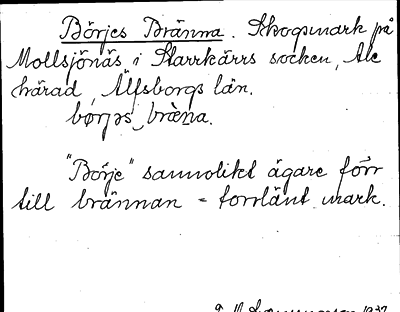 Börjes Bränna. Skogsmark på
Mollsjönäs i Starrkärrs socken, Ale
härad, Älfsborgs län.
børjəs bræna.
"Börje" sannolikt ägare förr
till brännan - torrlänt mark.
1937